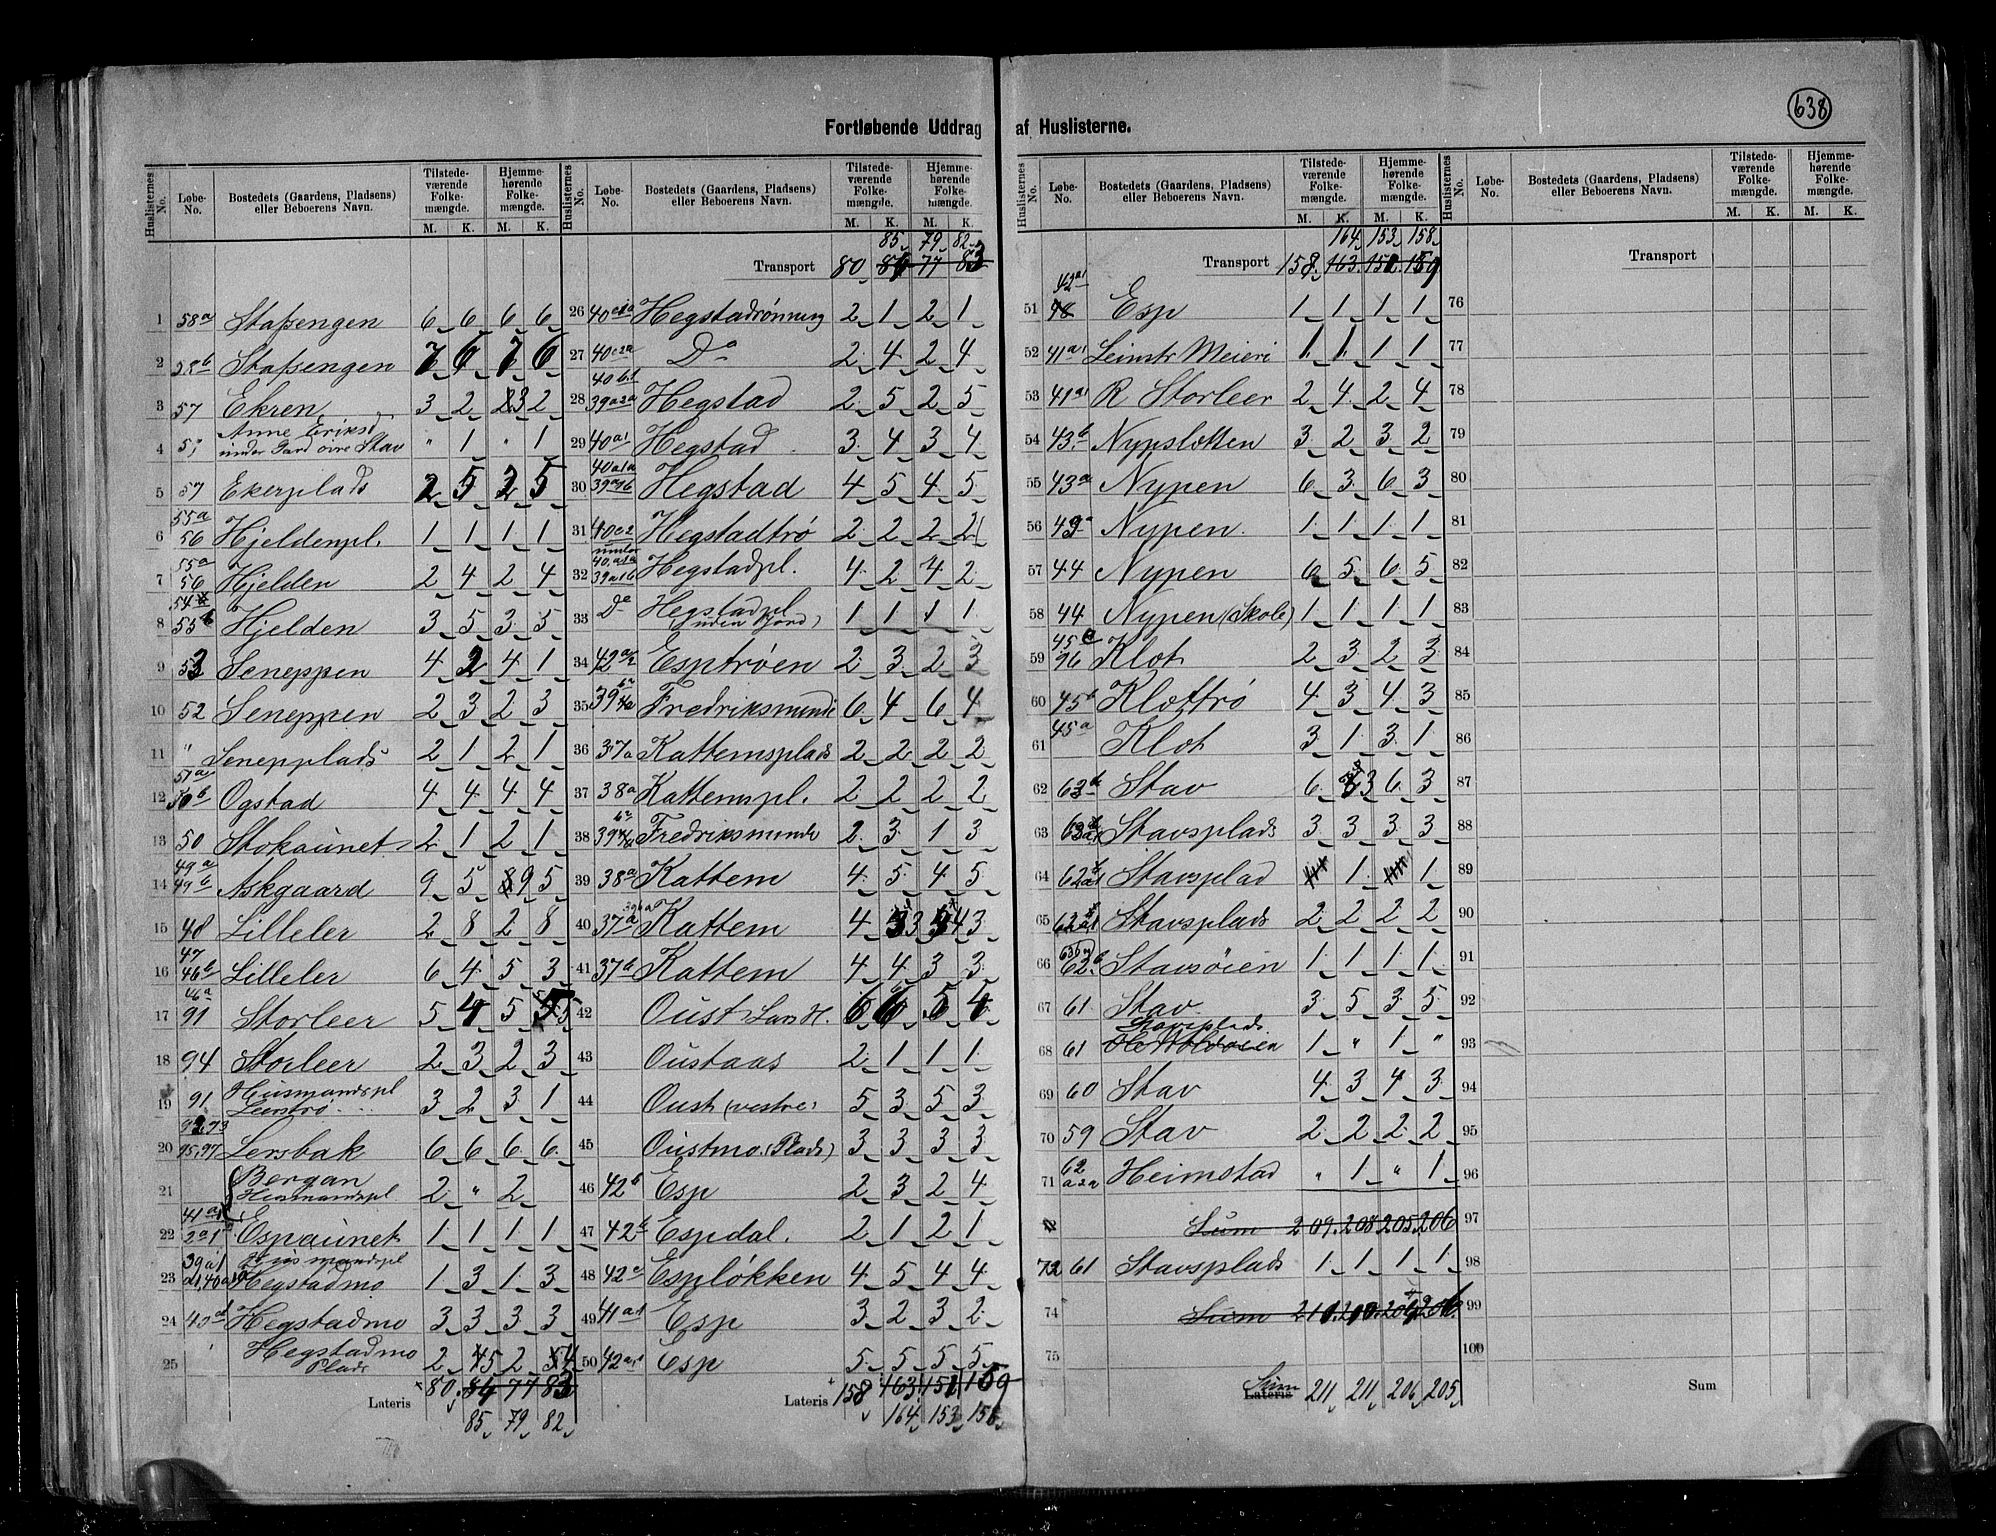 638
Fortløbende Uddrag af Huslisterne.
Huslisternes No. Løbe-No. Bostedets (Gaardens, Pladsens) eller Beboerens Navn. Tilstedeværende Folkemængde. M. K. Hjemmehørende Folkemængde. M. K.
1 58a Stafsengen 6 6 6 6
2 58b Stafsengen 7 6 7 6
3 57 Ekren 3 2 3 2
4 57 Anne Eriksd under Gard øvre Stav " 1 " 1
5 57 Ekerplads 2 5 2 5
6 55a 56 Hjeldenpl. 1 1 1 1
7 55a 56 Hjelden 2 4 2 4
8 54 55b Hjelden 3 5 3 5
9 53 Seneppen 4 2 4 1
10 52 Seneppen 2 3 2 3
11 " Senepplads 2 1 2 1
12 51a 50b Ogstad 4 4 4 4
13 50 Stokaunet 2 1 2 1
14 49a 49b Askgaard 9 5 9 5
15 48 Lilleler 2 8 2 8
16 47 46b Lilleler 6 4 5 3
17 46a 91 Storleer 5 4 5 5
18 94 Storleer 2 3 2 3
19 91 Husmandspl Leerstrø 3 2 3 1
20 92,93 95,97 Lersbak 6 6 6 6
21 Bergan Husmandspl 2 " 2
22 41a1 Espaunet 1 1 1 1
23 39a1 Husmandspl Hegstadmo 1 3 1 3
24 40d Hegstadmo 3 3 3 3
25 Hegstadmo Plads 2 5 2 4
Lateris 80 84 77 83
85 79 82
85 79 82
Transport 80 86 77 83
26 40c1a Hegstadrønning 2 1 2 1
27 40c2a Do 2 4 2 4
28 40b1 39a2a Hegstad 2 5 2 5
29 40a1 Hegstad 3 4 3 4
30 40a1a 39a1b Hegstad 4 5 4 5
31 40c2 Hegstadtrø 2 2 2 2
32 under 40a1a 39a1b Hegstadpl. 4 2 4 2
33 Do Hegstadpl (uden Jord) 1 1 1 1
34 42a/2 Esptrøen 2 3 2 3
35 39 Fredriksmunde 6 4 6 4
36 37a Kattemsplads 2 2 2 2
37 38a Kattemspl. 2 2 2 2
38 39 Fredriksmunde 2 3 1 3
39 38a Kattem 4 5 4 5
40 39ba 37a Kattem 4 3 4 3
41 37b Kattem 4 4 3 3
42 Oust Lars H. 6 6 5 4
43 Oustaas 2 1 1 1
44 Oust (vestre) 5 3 5 3
45 Oustmo (Plads) 3 3 3 3
46 42b Esp 2 3 2 4
47 42b Espdal. 2 1 2 1
48 42c Espløkken 4 5 4 4
49 41a1 Esp 3 2 3 2
50 42a1 Esp 5 5 5 5
Lateris 158 163 151 159
164 153 158
Huslisternes No. Løbe-No. Bostedets (Gaardens, Pladsens) eller Beboerens Navn. Tilstedeværende Folkemængde. M. K. Hjemmehørende Folkemængde. M. K.
164 153 158
Transport 158 163 151 159
51 42a1 48 Esp 1 1 1 1
52 41a1 Leinstr Meieri 1 1 1 1
53 41a1 R Storleer 2 4 2 4
54 43b Nypslotten 3 2 3 2
55 43a Nypen 6 3 6 3
56 43a Nypen 1 1 1 1
57 44 Nypen 6 5 6 5
58 44 Nypen (Skole) 1 1 1 1
59 45c 96 Klot 2 3 2 3
60 45b Klottrø 4 3 4 3
61 45a Klot 3 1 3 1
62 63b Stav 6 3 6 3
63 Stavsplads 3 3 3 3
64 62a1 Stavsplad 1 1
65 62a1 Stavsplads 2 2 2 2
66 63b 62b Stavsøien 1 1 1 1
67 61 Stav 3 5 3 5
68 61 Stavsplads 1 " 1 "
69 60 Stav 4 3 4 3
70 59 Stav 2 2 2 2
71 62 a2a Heimstad " 1 " 1
Sum 209 208 205 206
72 61 Stavsplads 1 1 1 1
74 Sum 210 206
75
Sum Lateris 211 211 206 205
Transport
76
77
78
79
80
81
82
83
84
85
86
87
88
89
90
91
92
93
94
95
96
97
98
99
100
Sum